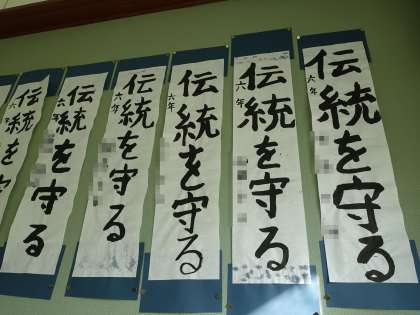 伝統を守る
六年
伝統を守る
六年
伝統を守る
六年
伝統を守る
六年
伝統を守る
六年
伝統を守